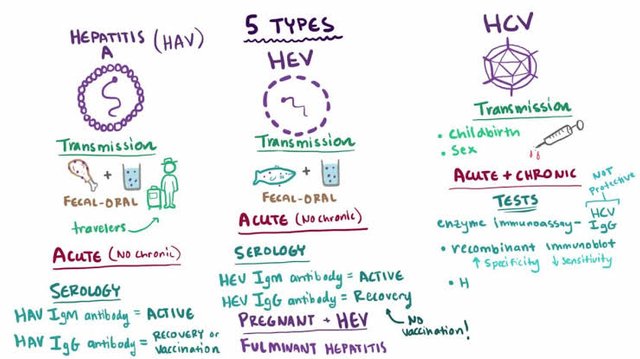 5 TYPES
HEPATITIS (HAV)
A
Transmission
+
FECAL-ORAL
travelers
ACUTE (No chronic)
SEROLOGY
HAV IgM antibody = ACTIVE
HAV IgG antibody = RECOVERY or
vaccination
HEV
Transmission
+
FECAL-ORAL
ACUTE (No chronic)
SEROLOGY
HEV IgM antibody = ACTIVE
HEV IgG antibody = Recovery
NO
vaccination!
PREGNANT + HEV
FULMINANT HEPATITIS
HCV
Transmission
• Childbirth
• Sex
ACUTE + CHRONIC
NOT
Protective
TESTS
enzyme immunoassay - HCV
IgG
• recombinant immunoblot
↑ Specificity ↓ Sensitivity
• H